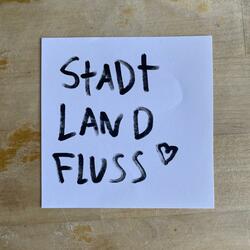 StADt
LAND
FLUSS ♡